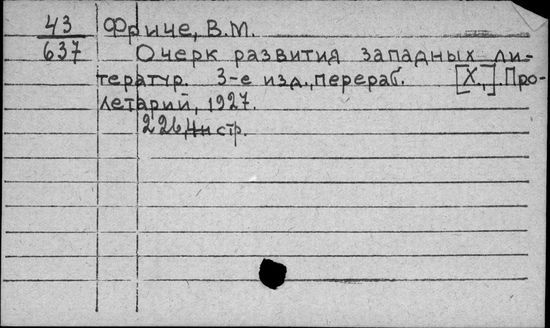 43
637
Фриче, В.М.
Очерк развития западных ли-
тератур. 3-е изд., перераб. [Х.,] Про-
летарий, 1927.
226, стр.